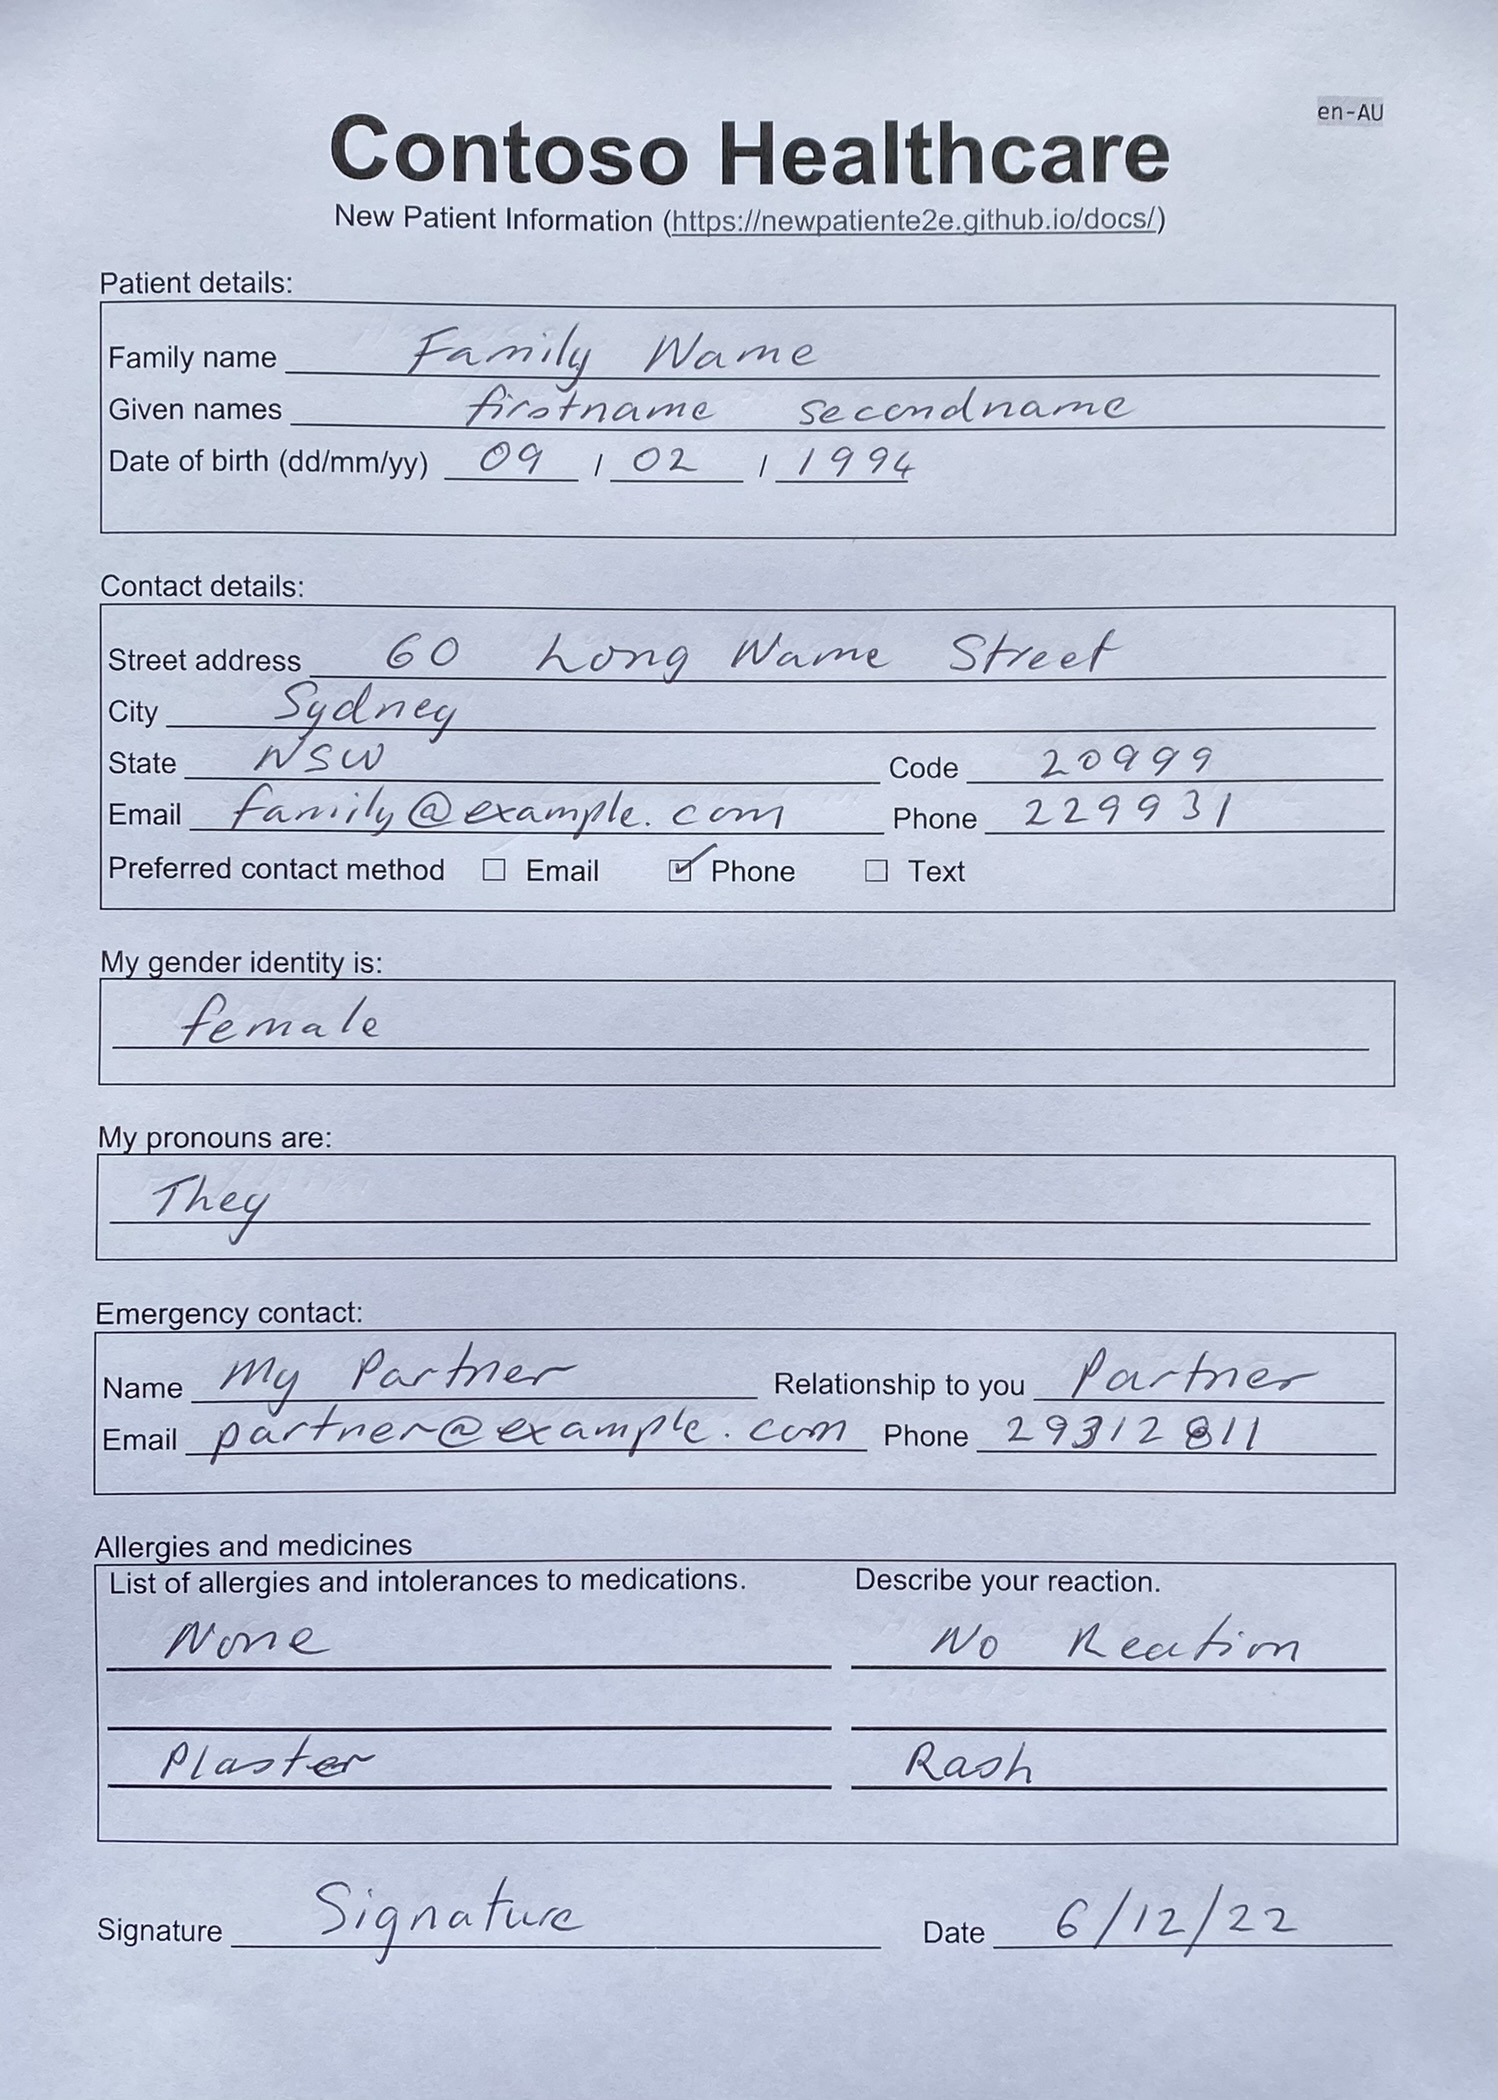 en-AU
Contoso Healthcare
New Patient Information (https://newpatiente2e.github.io/docs/)
Patient details:
Family name Family Name
Given names firstname secondname
Date of birth (dd/mm/yy) 09 / 02 / 1994
Contact details:
Street address 60 Long Name Street
City Sydney
State NSW Code 20999
Email family@example.com Phone 229931
Preferred contact method ☐ Email ☑ Phone ☐ Text
My gender identity is:
female
My pronouns are:
They
Emergency contact:
Name My Partner Relationship to you Partner
Email partner@example.com Phone 29312811
Allergies and medicines
List of allergies and intolerances to medications. Describe your reaction.
None No Reation
Plaster Rash
Signature Signature Date 6/12/22